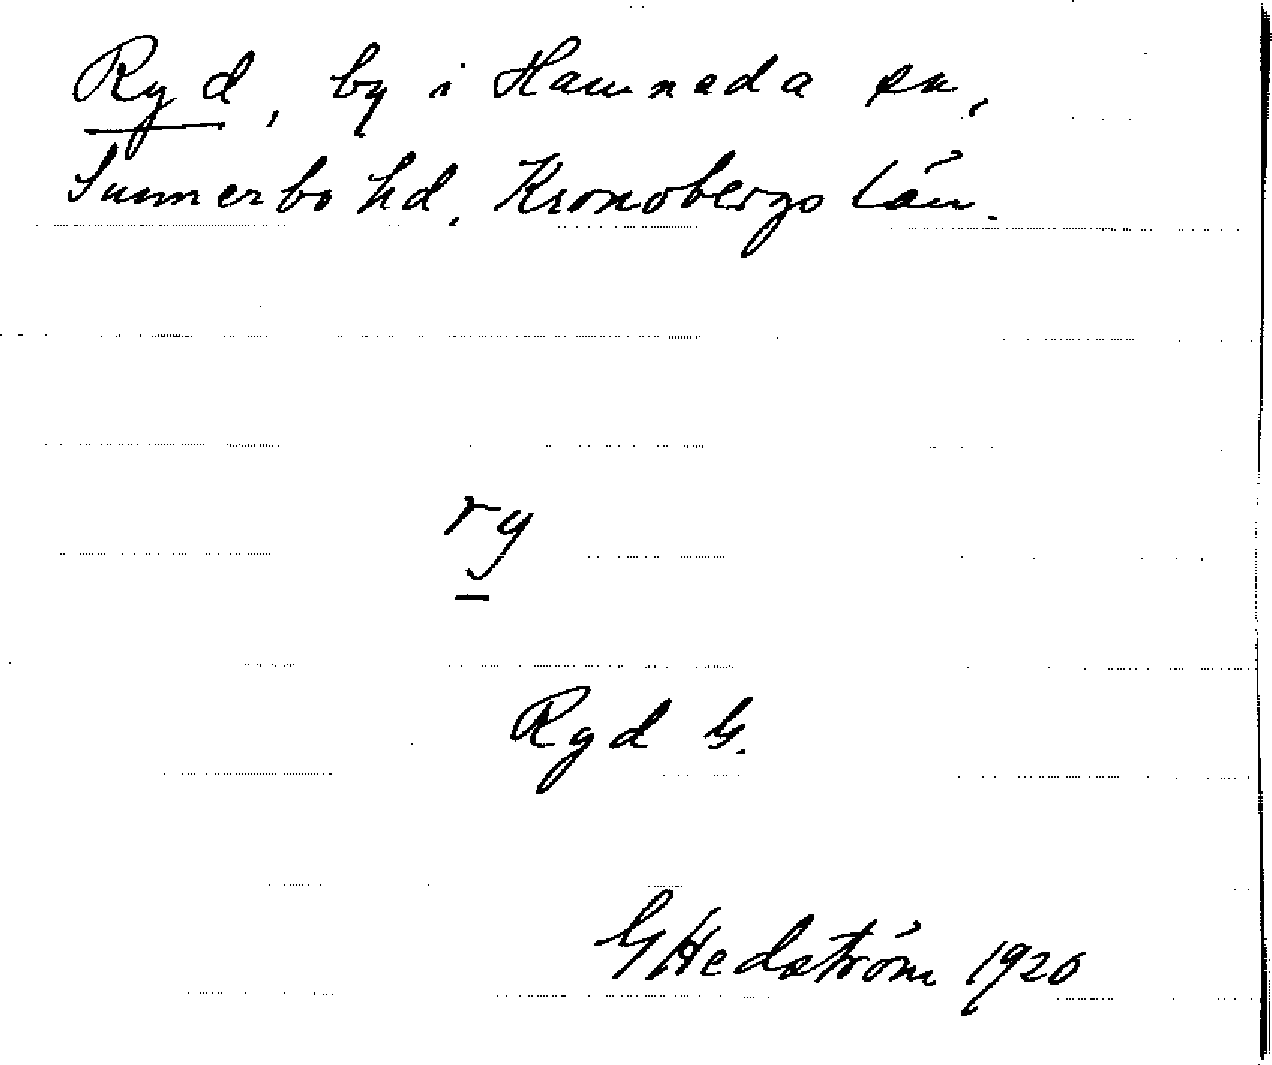 Ryd, by i Hamneda sn,
Sunnerbo hd. Kronobergs län.
ry
Ryd G.
GHedström 1920